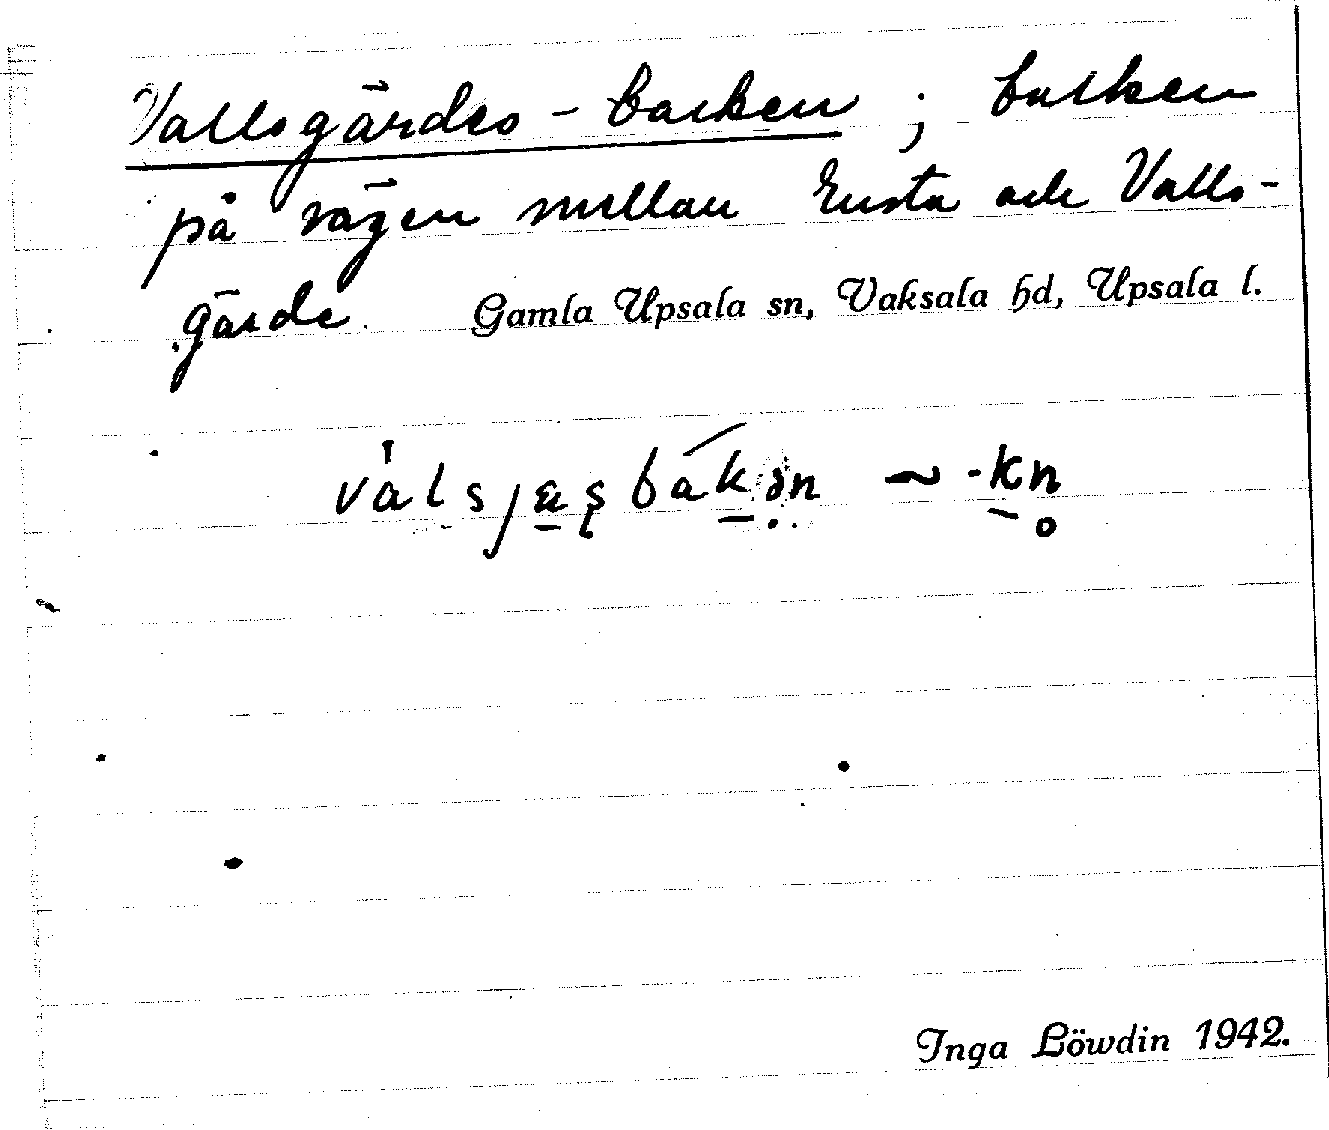 Vallsgärdes-backen ; backen
på vägen mellan Ensta och Valls-
gärde. Gamla Upsala sn, Vaksala hd, Upsala l.
Inga Löwdin 1942.